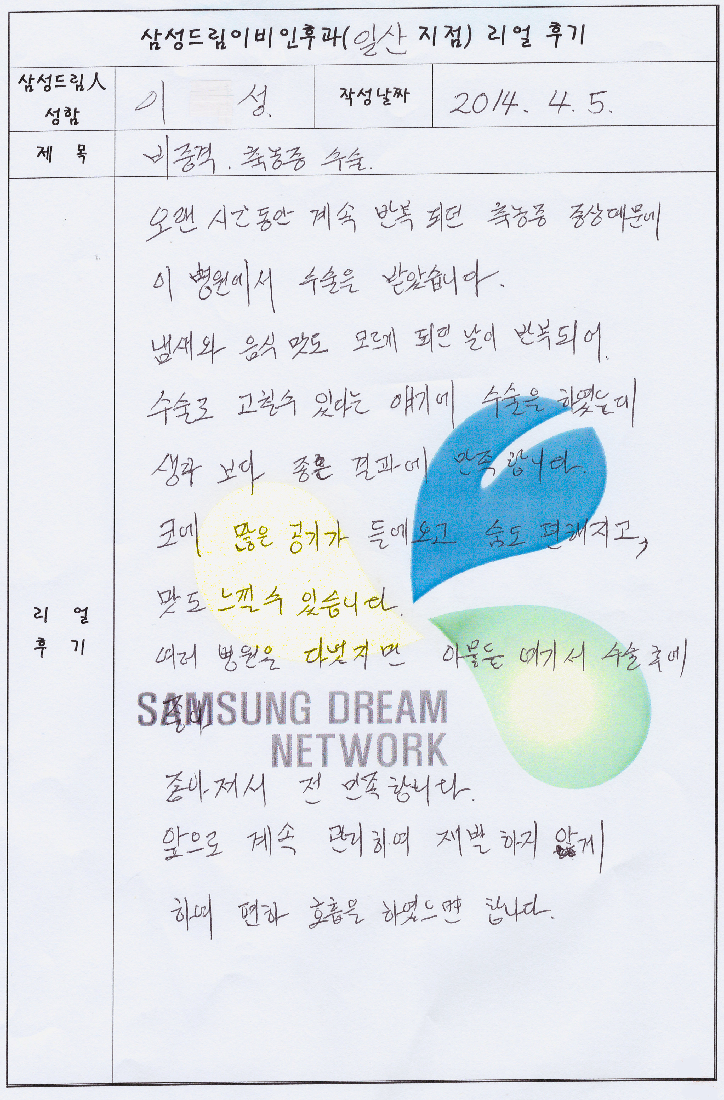 삼성드림이비인후과(일산 지점) 리얼 후기
삼성드림人 성함
이 성.
작성날짜
2014. 4. 5.
제 목
비중격. 축농증 수술.
리 얼
후 기
오랜 시간동안 계속 반복 되던 축농증 증상때문에
이 병원에서 수술을 받았습니다.
냄새와 음식 맛도 모르게 되던 날이 반복되어.
수술로 고칠수 있다는 얘기에 수술을 하였는데
생각 보다 좋은 결과에 만족 합니다.
코에 많은 공기가 들에오고 숨도 편해지고,
맛도 느낄수 있습니다.
여러 병원을 다녔지만 아물튼 여기서 수술 후에
SAMSUNG DREAM
NETWORK
좋아저서 전 만족합니다.
앞으로 계속 관리하여 재발 하지 않게
하여 편하 호흡을 하였으면 합니다.